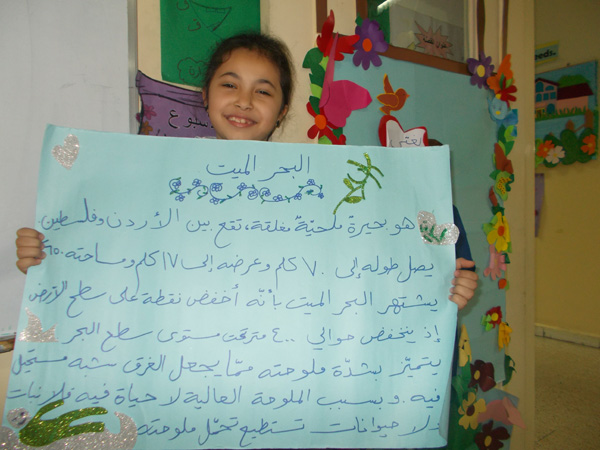 البحر الميت
هو بحيرة ملحيّة مغلقة، تقع بين الأردن وفلسطين.
يصل طوله إلى ٧٠ كلم وعرضه إلى ١٧ كلم ومساحته
يشتهر البحر الميت بأنّه أخفض نقطة على سطح الأرض
إذ ينخفض حوالي ٤٠٠ متر تحت مستوى سطح البحر
يتميّز بشدّة ملوحته ممّا يجعل الغرق شبه مستحيل
فيه. و بسبب الملوحة العالية لا حياة فيه فلا نبات
ولا حيوانات تستطيع تحمّل ملوحته